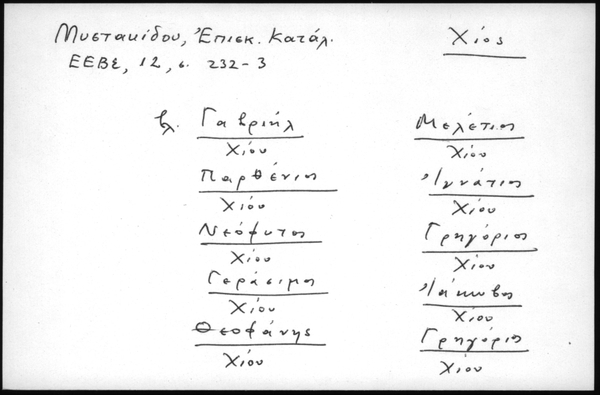 Μυστακίδου, Ἐπισκ. Κατάλ.
ΕΕΒΣ, 12, σ. 232-3
Χίος
βλ. Γαβριήλ
Χίου
Παρθένιος
Χίου
Νεόφυτος
Χίου
Γεράσιμος
Χίου
Θεοφάνης
Χίου
Μελέτιος
Χίου
Ἰγνάτιος
Χίου
Γρηγόριος
Χίου
Ἰάκωβος
Χίου
Γρηγόριος
Χίου